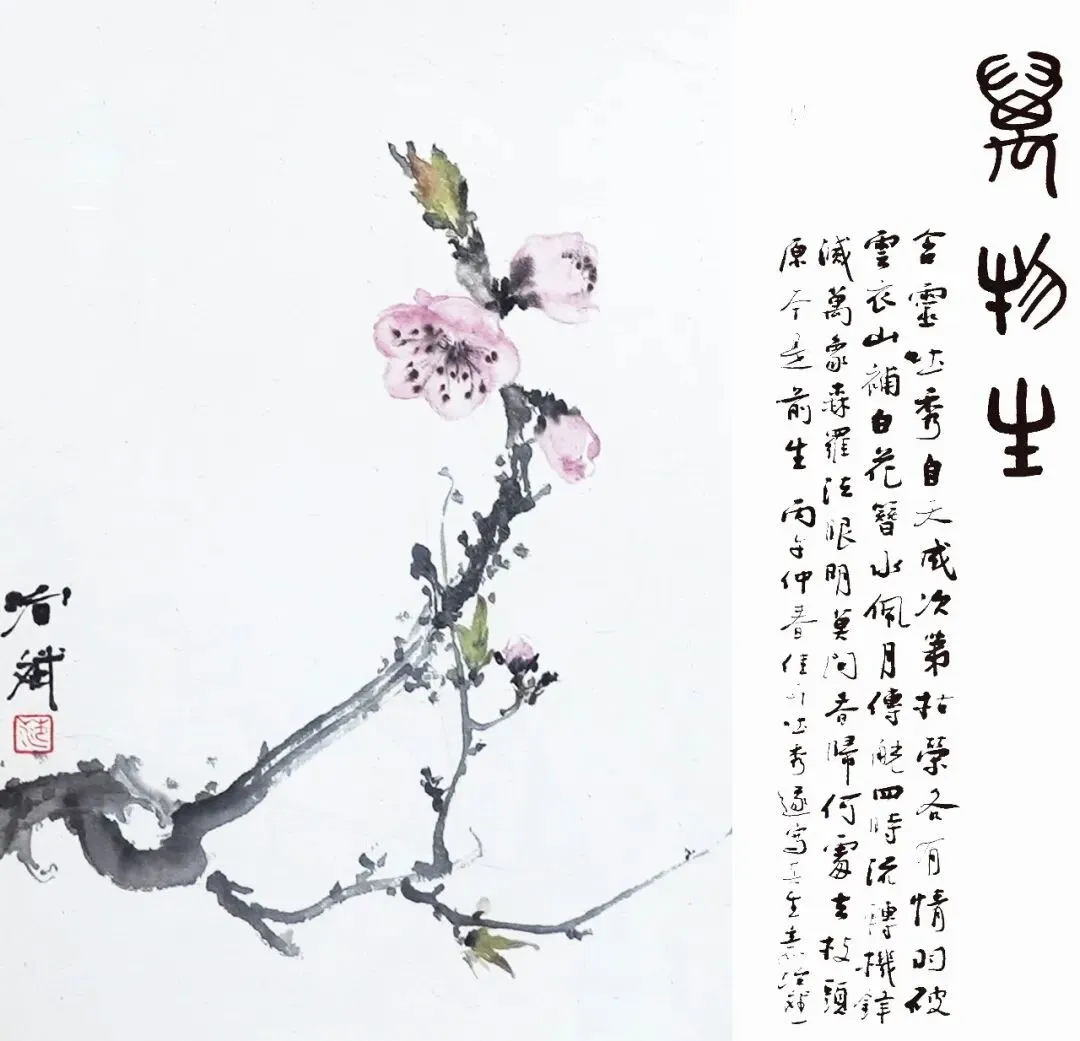 萬物生
含靈吐秀自天成次第枯榮各有情羽破
雲衣山補白花簪水佩月傳觥四時流轉機鋒
滅萬象森羅法眼明莫問春歸何處去枝頭
原今是前生 丙午仲春佳卉吐秀遂寫其生意治斌
治斌